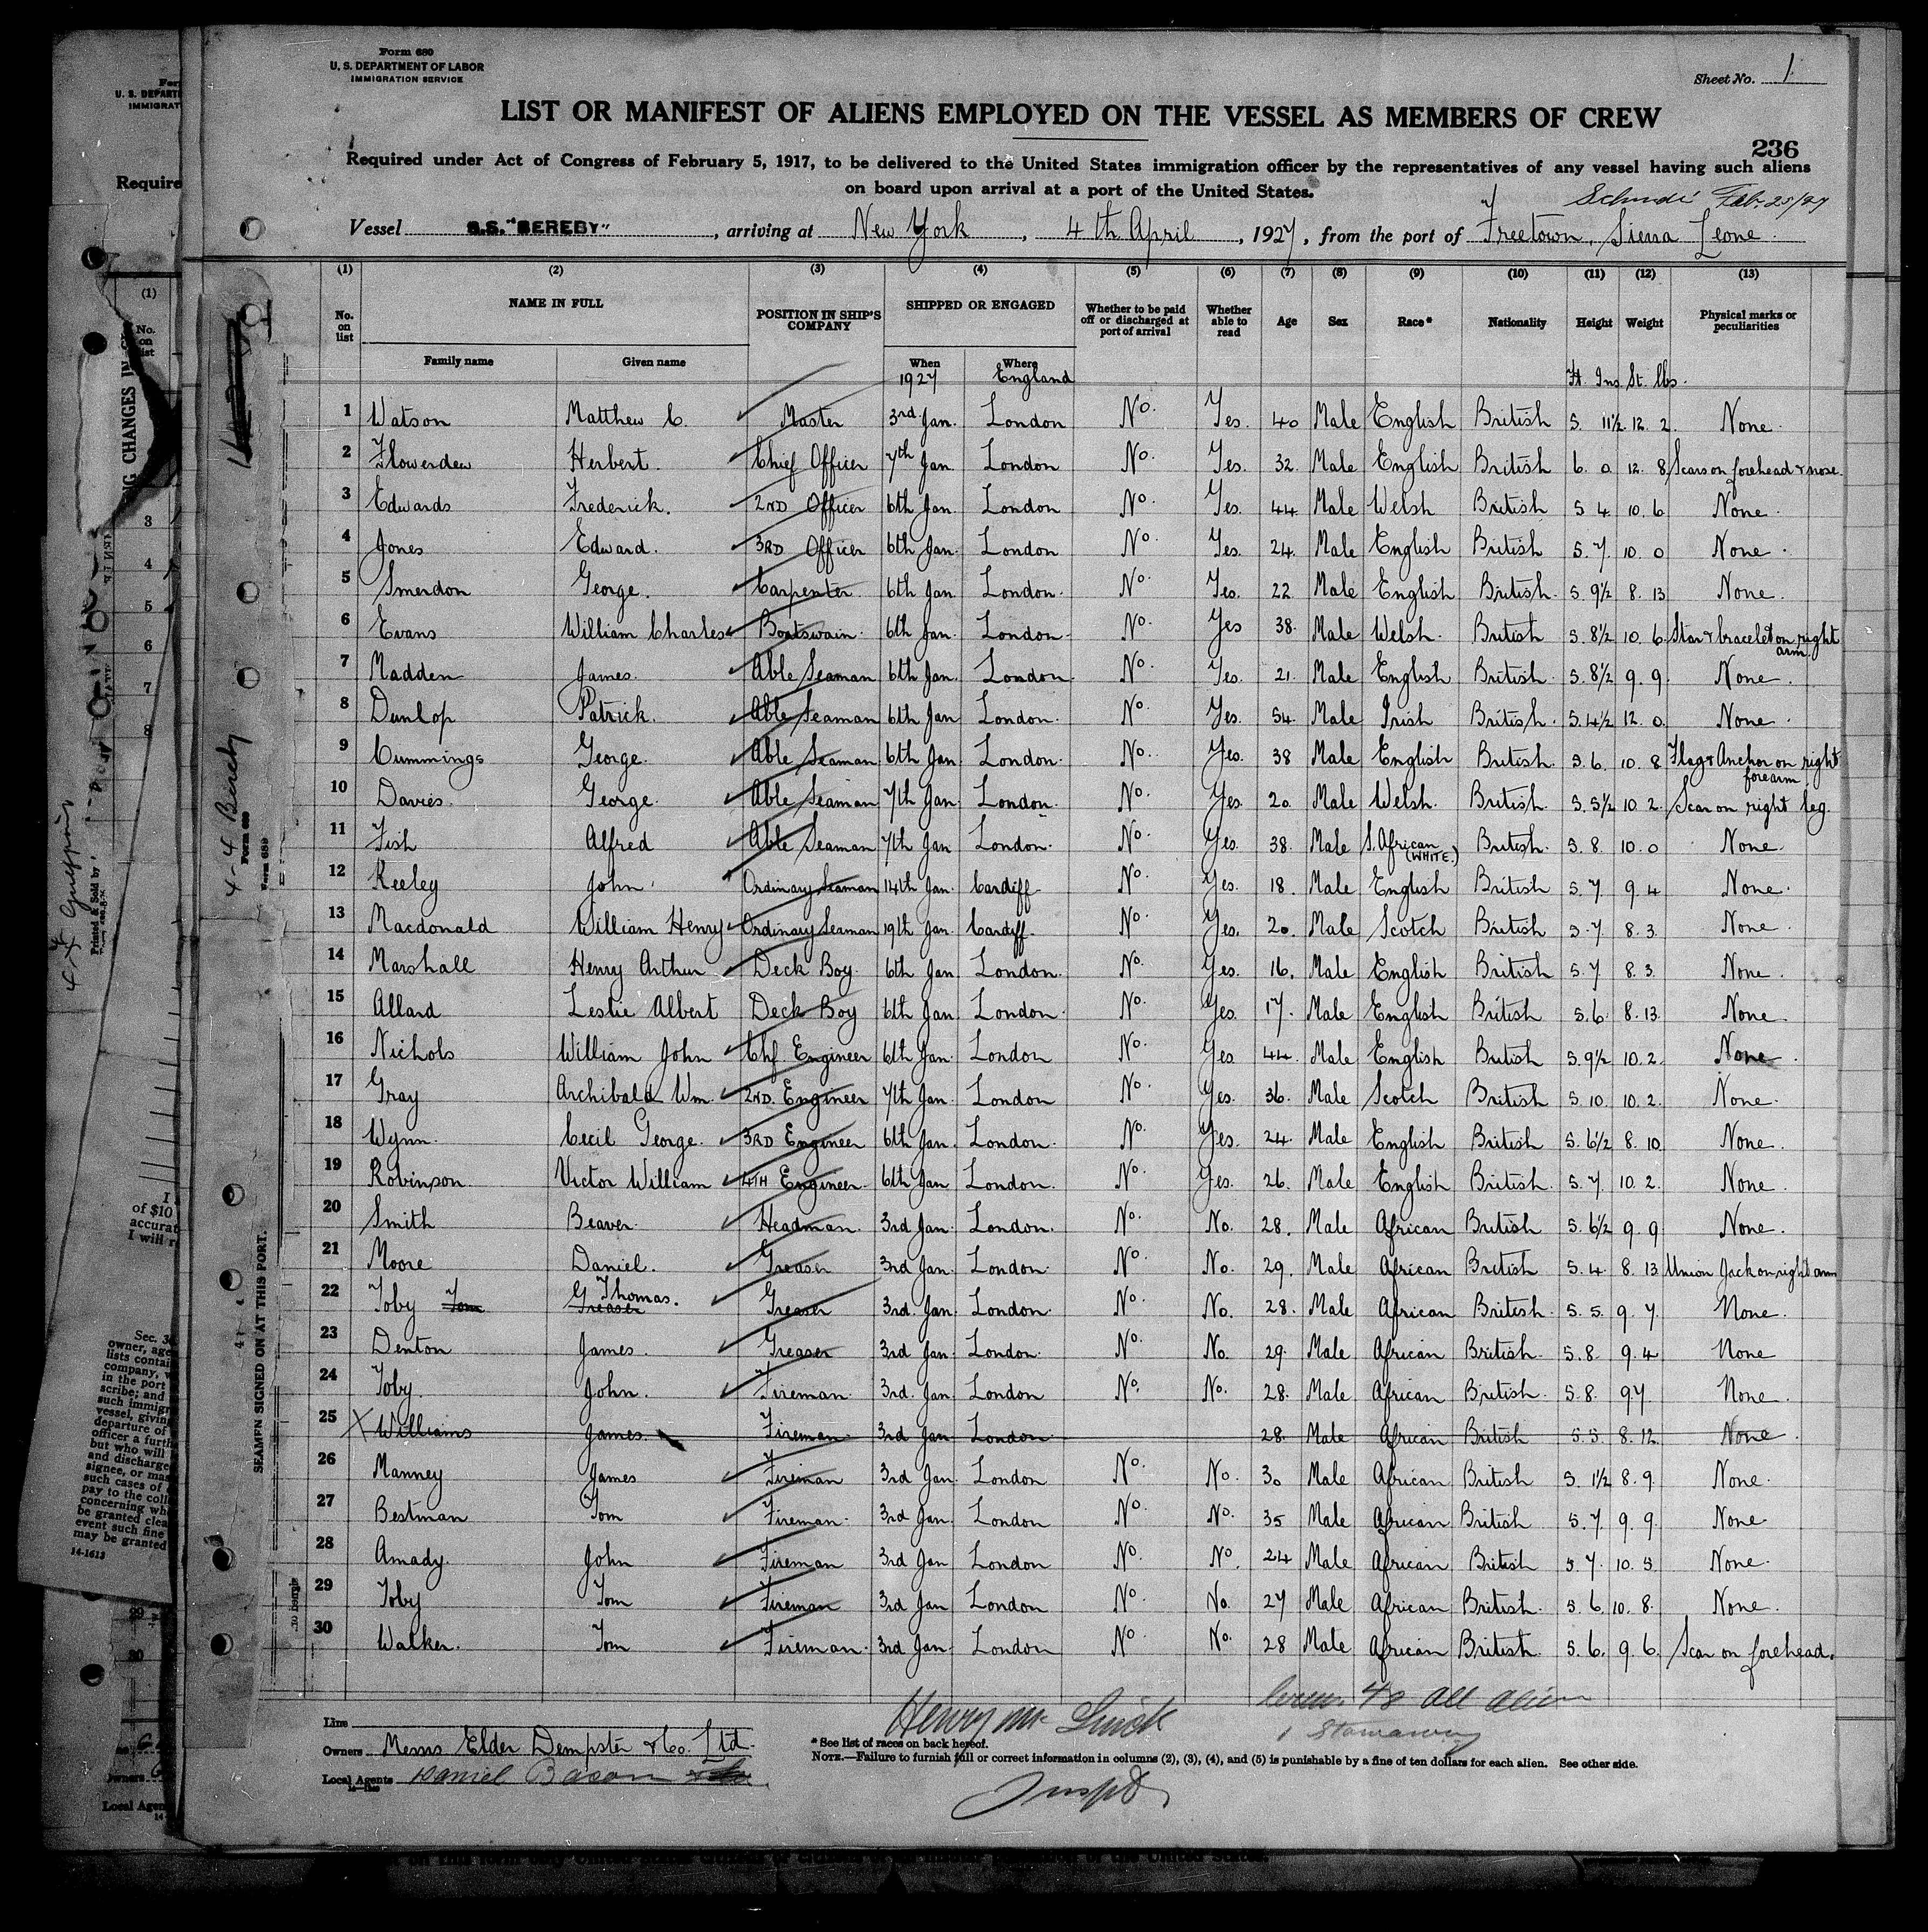 Form 680
U. S. DEPARTMENT OF LABOR
IMMIGRATION SERVICE
Sheet No. 1
LIST OR MANIFEST OF ALIENS EMPLOYED ON THE VESSEL AS MEMBERS OF CREW
236
Required under Act of Congress of February 5, 1917, to be delivered to the United States immigration officer by the representatives of any vessel having such aliens
on board upon arrival at a port of the United States.
Feb. 25/27
Vessel S.S. "BEREBY", arriving at New York, 4th April, 1927, from the port of Freetown, Sierra Leone.
(1) (2) (3) (4) (5) (6) (7) (8) (9) (10) (11) (12) (13)
No. on list NAME IN FULL POSITION IN SHIP'S COMPANY SHIPPED OR ENGAGED Whether to be paid off or discharged at port of arrival Whether able to read Age Sex Race* Nationality Height Weight Physical marks or peculiarities
Family name Given name When Where
1927 England Ft. Ins. St. lbs.
1 Watson Matthew C. Master 3rd Jan. London No. Yes. 40 Male English British 5. 11½ 12. 2. None.
2 Flowerdew Herbert. Chief Officer 7th Jan London No. Yes. 32 Male English British 6. 0 12. 8. Scars on forehead & nose.
3 Edwards Frederick. 2ND Officer 6th Jan. London No. Yes. 44 Male Welsh British 5 4 10. 6 None.
4 Jones Edward. 3RD Officer 6th Jan. London No. Yes. 24. Male English British 5. 7. 10. 0 None.
5 Smerdon George. Carpenter. 6th Jan London. No. Yes. 22 Male English British. 5. 9½ 8. 13 None.
6 Evans William Charles Boatswain. 6th Jan. London. No. Yes 38. Male Welsh. British 5. 8½ 10. 6. Star & bracelet on right arm.
7 Madden James. Able Seaman 6th Jan. London. No. Yes. 21. Male English British. 5. 8½ 9. 9. None.
8 Dunlop Patrick. Able Seaman 6th Jan London. No. Yes. 54. Male Irish British. 5. 4½ 12. 0. None.
9 Cummings George. Able Seaman 6th Jan London. No. Yes. 38 Male English British. 5. 6. 10. 8 Flag & Anchor on right forearm
10 Davies. George. Able Seaman 7th Jan London. No. Yes. 20. Male Welsh. British. 5. 5½ 10. 2. Scar on right leg.
11 Fish Alfred Able Seaman 7th Jan London. No. Yes. 38. Male S. African (WHITE.) British. 5. 8. 10. 0 None.
12 Keeley John. Ordinary Seaman 14th Jan. Cardiff. No. Yes. 18. Male English British 5. 7. 9. 4 None.
13 Macdonald William Henry. Ordinary Seaman 19th Jan. Cardiff. No. Yes. 20. Male Scotch British 5. 7 8. 3. None.
14 Marshall Henry Arthur Deck Boy. 6th Jan London. No. Yes. 16. Male English British 5. 7 8. 3. None.
15 Allard Leslie Albert Deck Boy 6th Jan London. No. Yes. 17. Male English British 5. 6. 8. 13. None.
16 Nichols William John Chf. Engineer 6th Jan. London No. Yes 44. Male English British 5. 9½ 10. 2. None.
17 Gray Archibald Wm. 2ND. Engineer 7th Jan. London No. Yes. 36. Male Scotch British 5. 10. 10. 2. None.
18 Wynn. Cecil George. 3RD Engineer 6th Jan. London. No. Yes. 24. Male English British 5. 6½ 8. 10. None.
19 Robinson. Victor William 4TH Engineer. 6th Jan London. No. Yes. 26. Male English British. 5. 7. 10. 2. None.
20 Smith Beaver. Headman. 3rd Jan. London. No. No. 28. Male African British 5. 6½ 9. 9 None.
21 Moore Daniel. Greaser 3rd Jan. London. No. No. 29. Male African British 5. 4. 8. 13 Union Jack on right arm
22 Toby Tom G Thomas. Greaser Greaser 3rd. Jan. London. No. No. 28. Male African British. 5. 5. 9. 7. None.
23 Denton James. Greaser 3rd Jan. London. No. No. 29. Male African British. 5. 8. 9. 4 None
24 Toby. John. Fireman. 3rd. Jan. London No. No. 28. Male African British. 5. 8. 9 7. None.
25 X Williams James. Fireman. 3rd Jan London. 28. Male African British 5. 5. 8. 12. None.
26 Manney James Fireman 3rd Jan. London No. No. 30 Male African British 5. 1½ 8. 9. None.
27 Bestman Tom Fireman. 3rd Jan. London No. No. 35 Male African British 5. 7. 9. 9. None
28 Amady. John Fireman 3rd Jan London No. No. 24 Male African British 5. 7. 10. 5. None.
29 Toby Tom Fireman 3rd Jan London No. No. 27 Male African British. 5. 6. 10. 8. None.
30 Walker. Tom Fireman. 3rd Jan. London No. No. 28 Male African British 5. 6. 9. 6. Scar on forehead.
48 all alien
1 Stowaway
Line
Henry
Owners Messrs Elder Dempster & Co. Ltd.
Local Agents Daniel Bacon
* See list of races on back hereof.
NOTE.—Failure to furnish full or correct information in columns (2), (3), (4), and (5) is punishable by a fine of ten dollars for each alien. See other side.
Inspt
4-4 Bereby
Form 680
Form 680
SEAMEN SIGNED ON AT THIS PORT.
NG CHANGES IN
Printed & Sold by
U. S. DEPART
IMMIGRAT
Require
(1)
No. on list
3
4
5
6
7
8
of $10
accurat
I will r
Sec. 36
owner, age
lists contai
company, w
in the port
scribe; and
such immigr
vessel, giving
departure of
officer a furth
but who will
and discharge
signee, or mas
such cases of
pay to the coll
concerning wh
be granted clea
event such fine
may be granted
14-1613
29
30
Owners
Local Agen